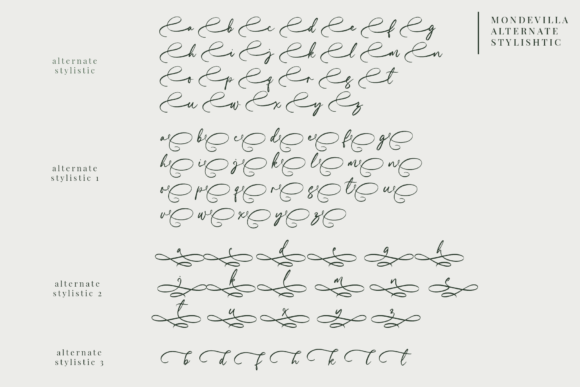 MONDEVILLA
ALTERNATE
STYLISHTIC
alternate
stylistic
a b c d e f g
h i j k l m n
o p q r s t
u w x y z
alternate
stylistic 1
a b c d e f g
h i j k l m n
o p q r s t u
v w x y z
alternate
stylistic 2
a c d e g h
j k l m n s
t u x y z
alternate
stylistic 3
b d f h k l t